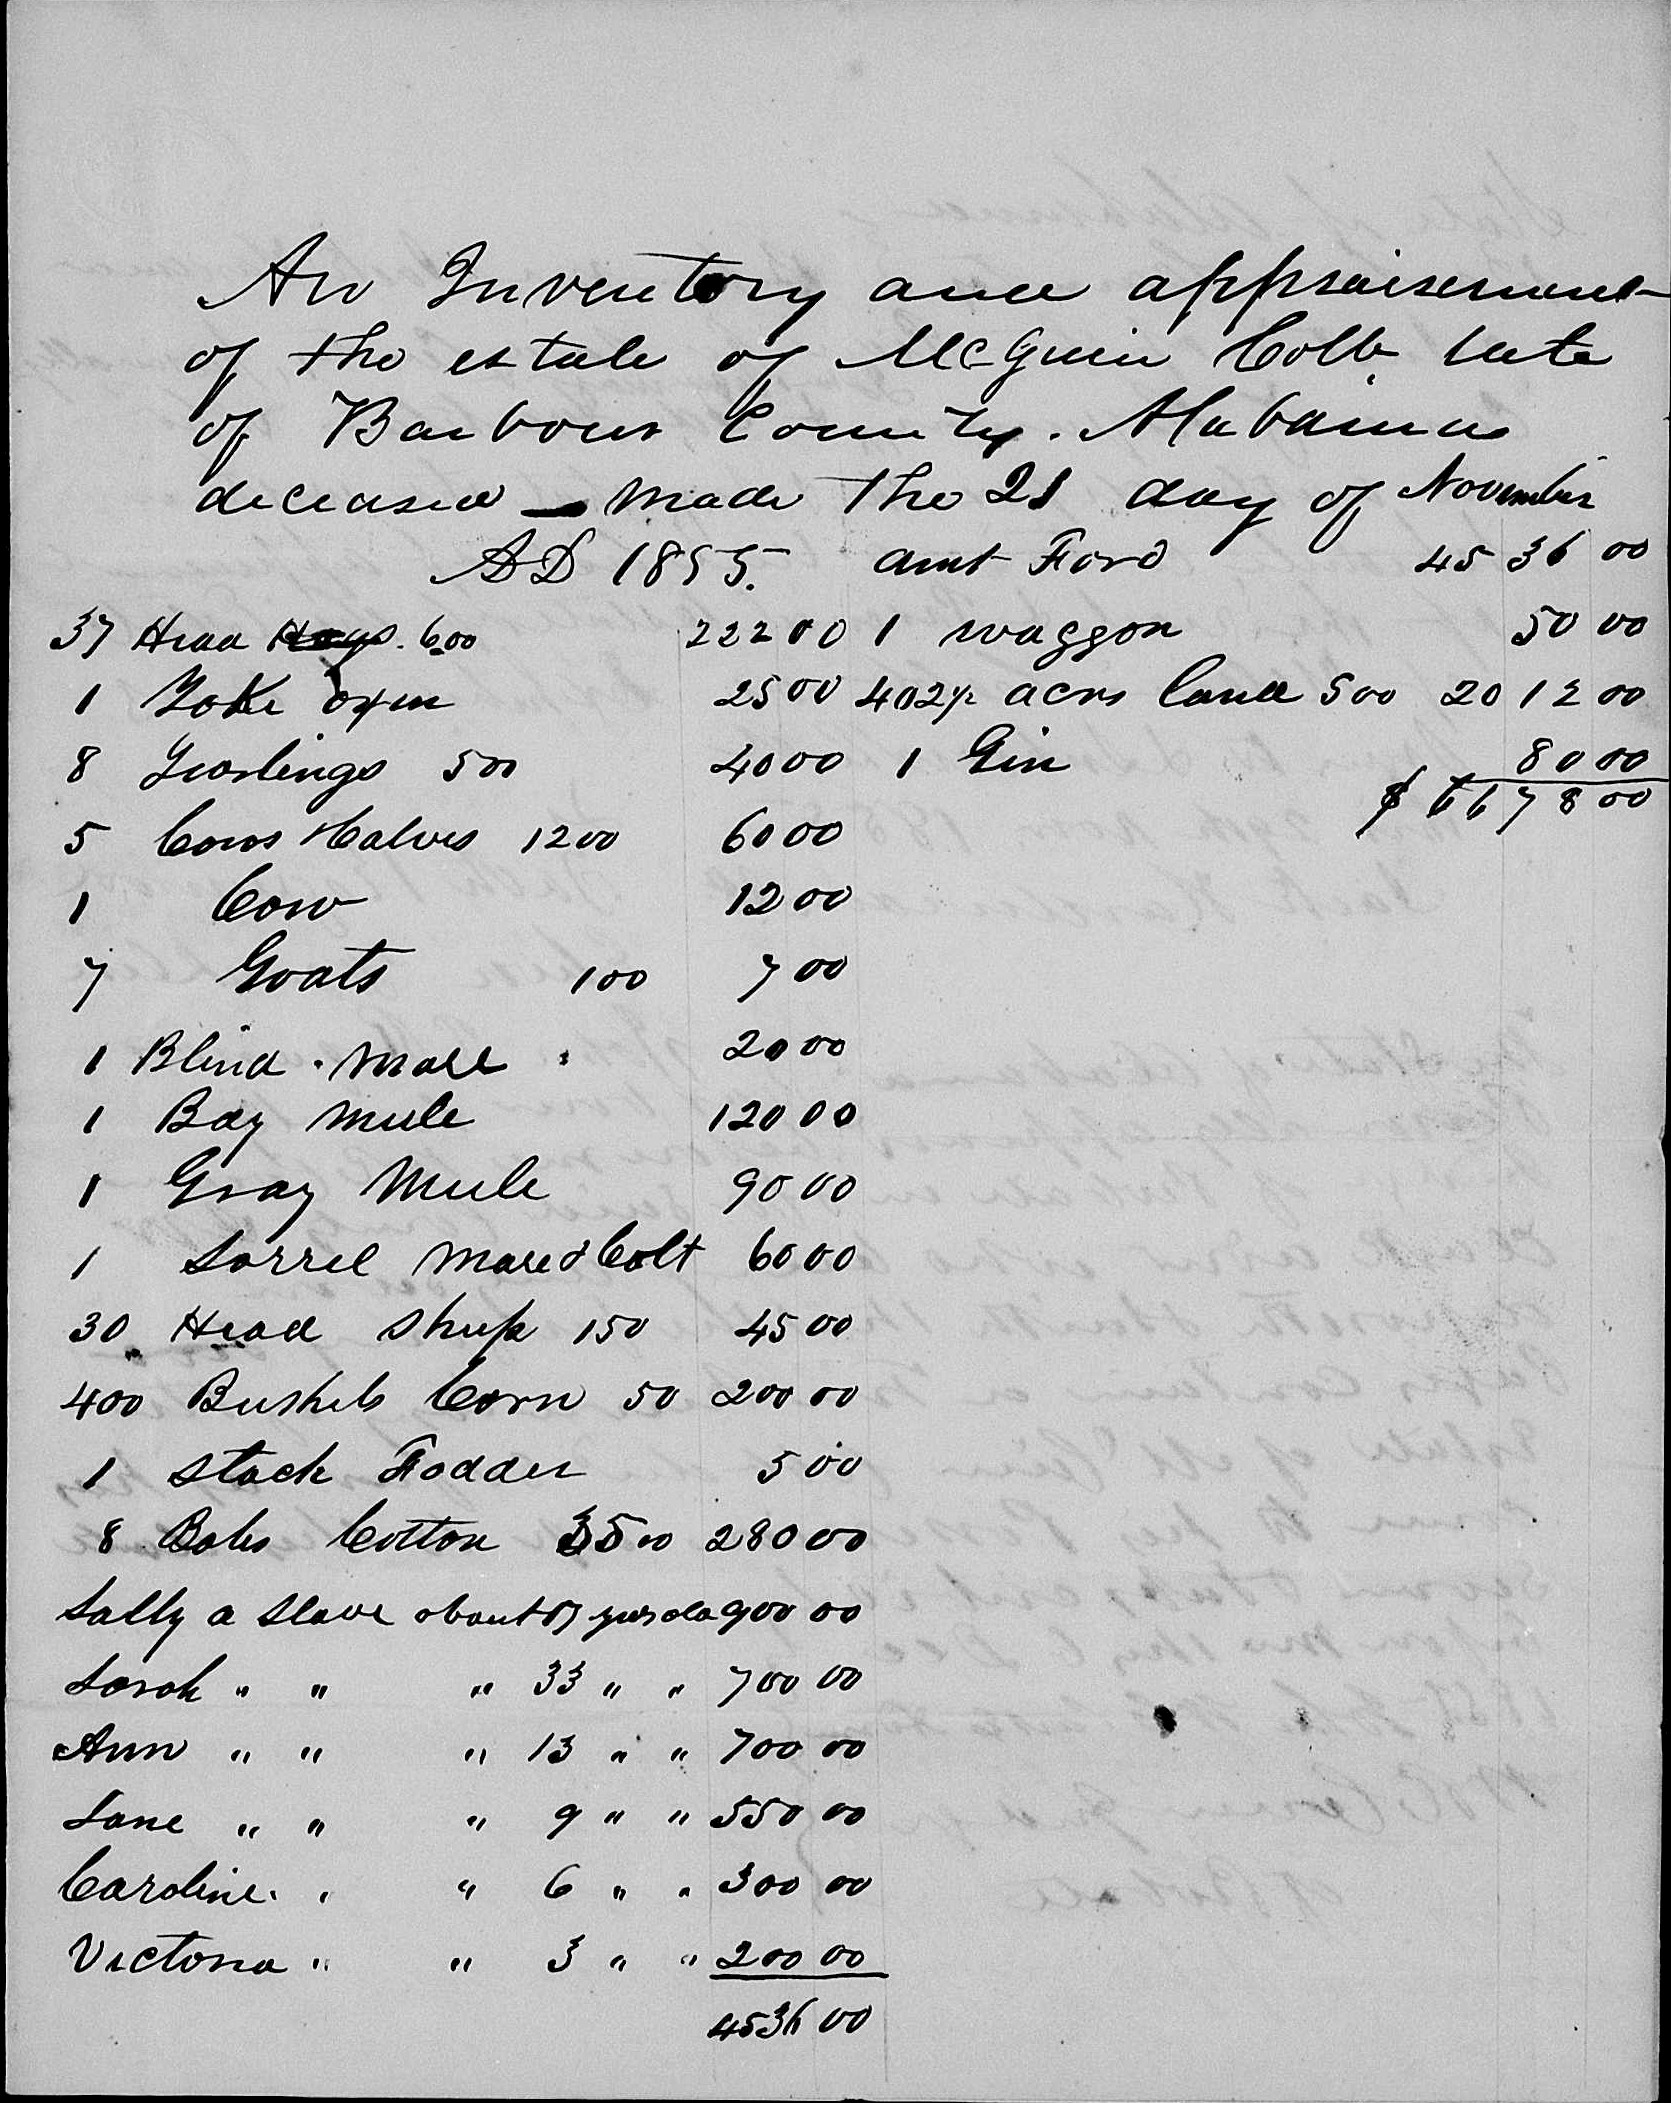 An Inventory and appraisement
of the estate of McGuin Cobb late
of Barbour County. Alabama
deceased — made the 21 day of November
AD 1855.
37 Head Hogs. 600 222 00
1 Yoke oxen 25 00
8 Yearlings 500 40 00
5 Cows & Calves 1200 60 00
1 Cow 12 00
7 Goats 100 7 00
1 Blind Mare 20 00
1 Bay Mule 120 00
1 Gray Mule 90 00
1 Sorrel Mare & Colt 60 00
30 Head Sheep 150 45 00
400 Bushels Corn 50 200 00
1 Stack Fodder 5 00
8 Bales Cotton 3500 280 00
Sally a slave about years old 900 00
Sarah " " " 33 " " 700 00
Ann " " " 13 " " 700 00
Jane " " " 9 " " 550 00
Caroline " " 6 " " 300 00
Victoria " " 3 " " 200 00
4536 00
amt Ford 4536 00
1 waggon 50 00
402½ acrs land 500 2012 00
1 Gin 80 00
$ 6678 00